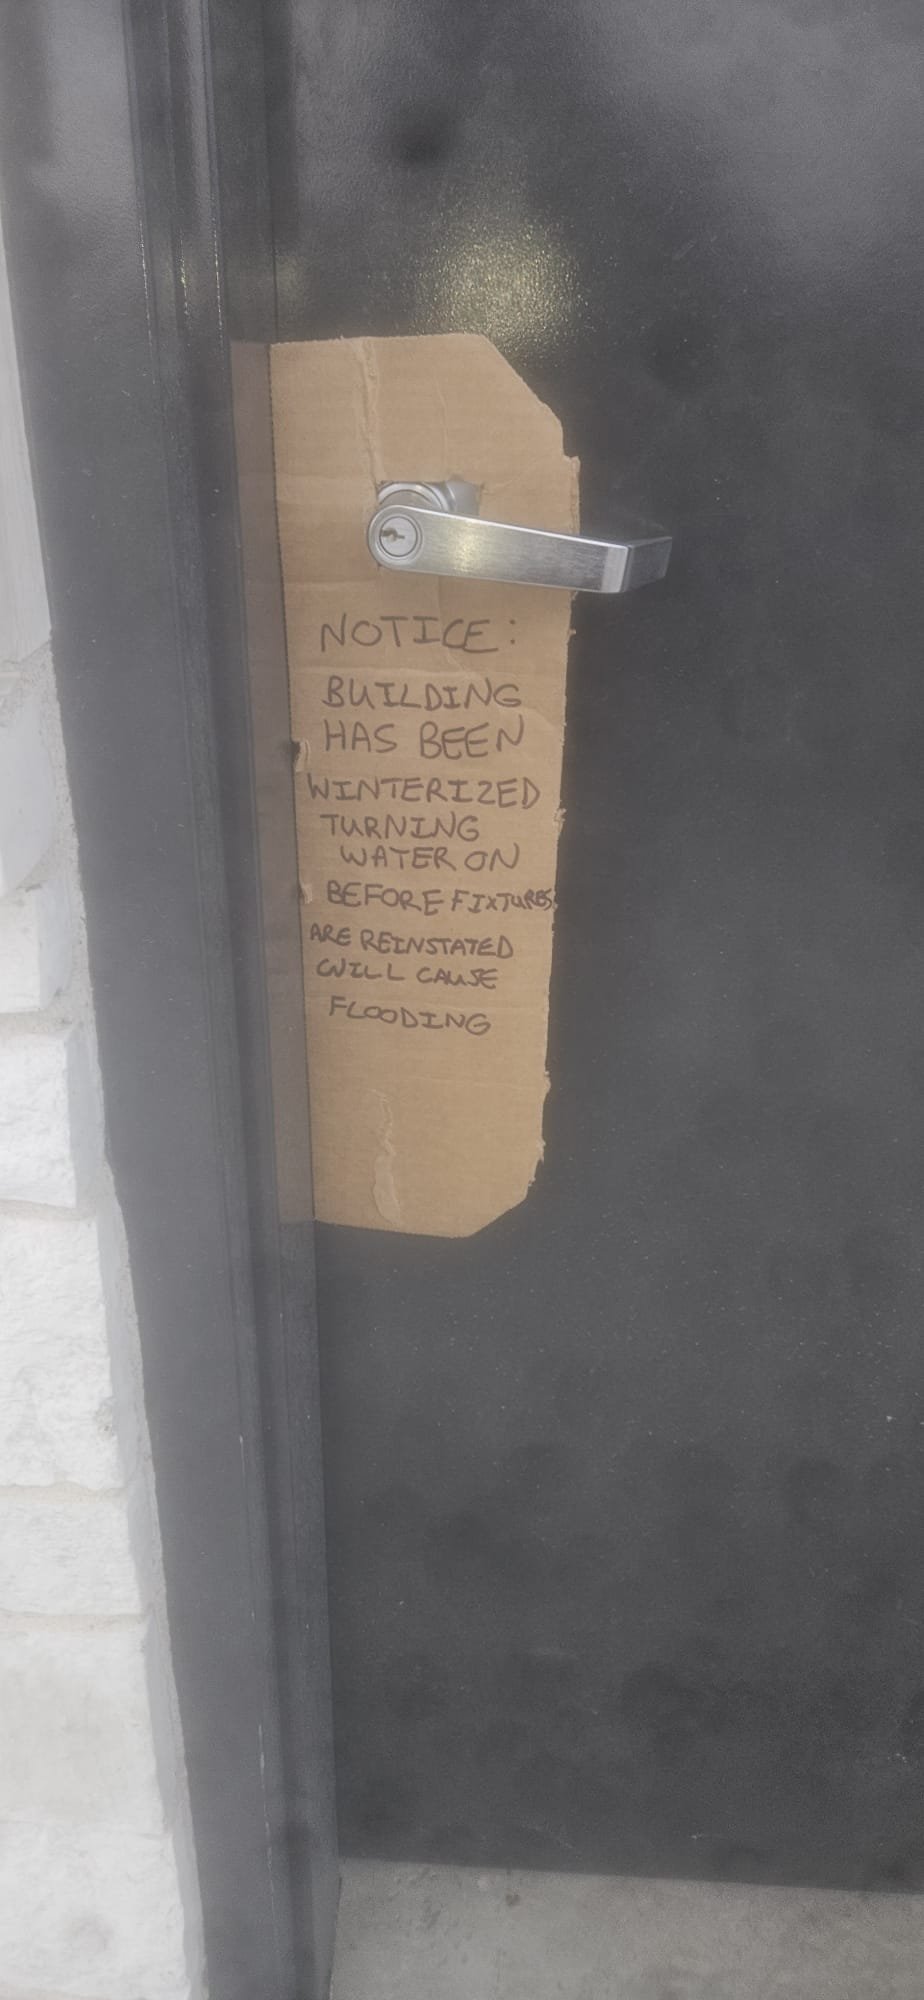 NOTICE:
BUILDING
HAS BEEN
WINTERIZED
TURNING
WATER ON
BEFORE FIXTURES
ARE REINSTATED
WILL CAUSE
FLOODING